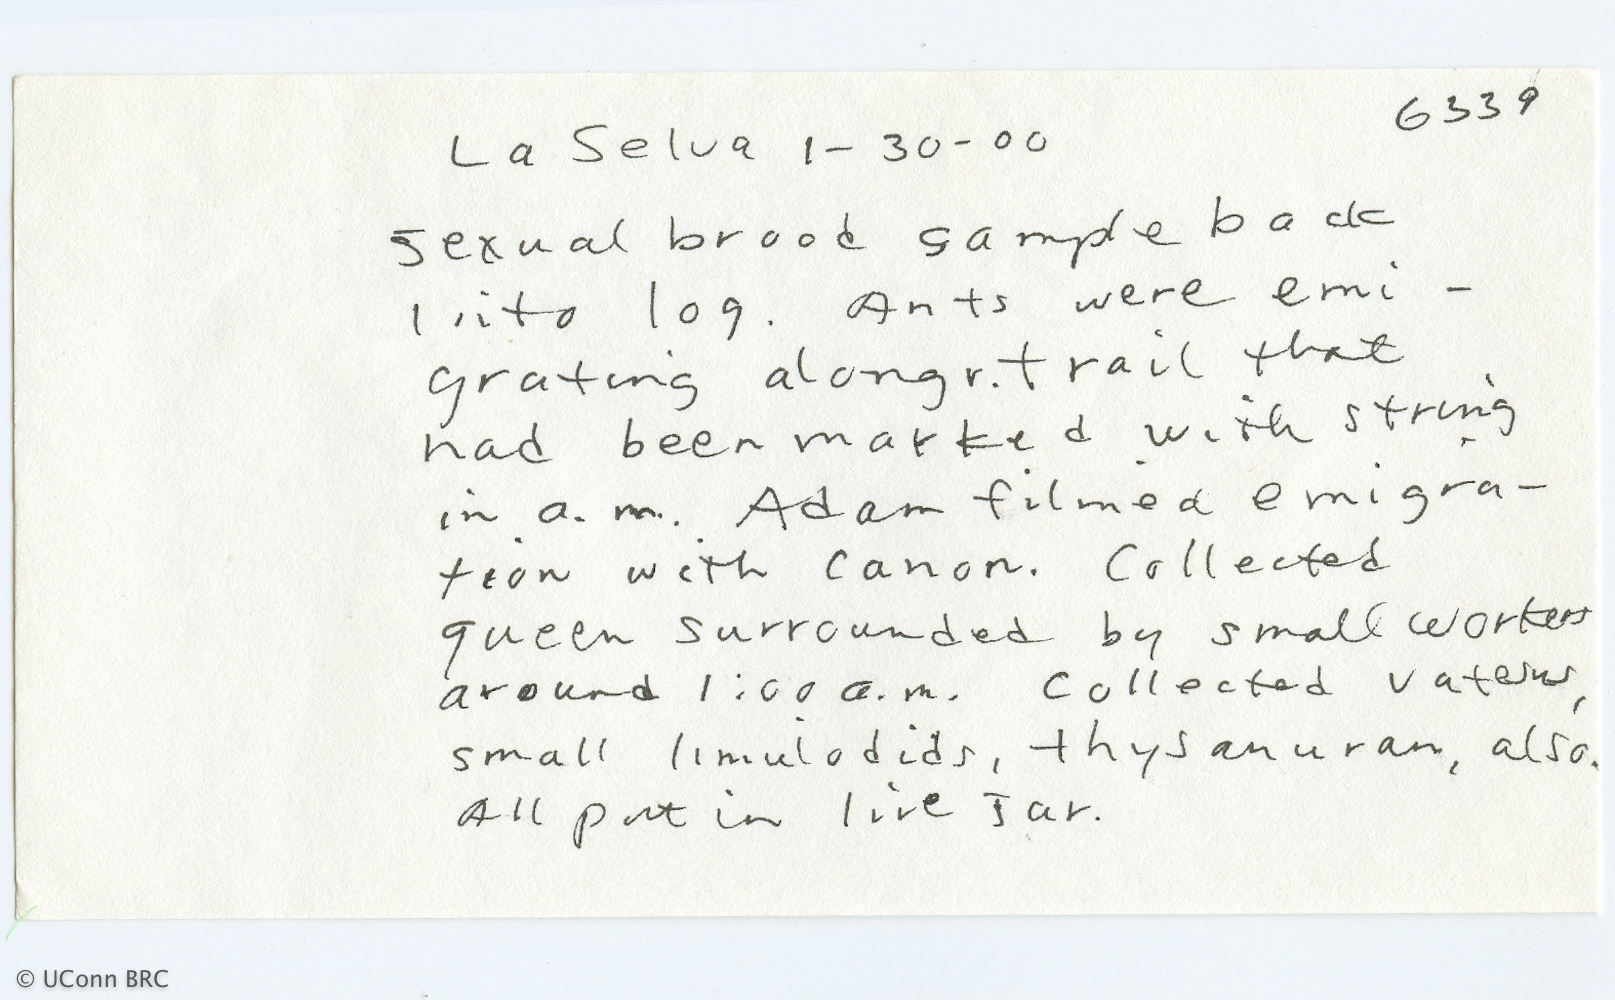 6339
La Selva 1-30-00
sexual brood sample back
into log. Ants were emi-
grating along r. trail that
had been marked with string
in a.m. Adam filmed emigra-
tion with Canon. Collected
queen surrounded by small workers
around 1:00 a.m. Collected vatesus,
small limulodids, thysanuran, also.
All put in live jar.
© UConn BRC